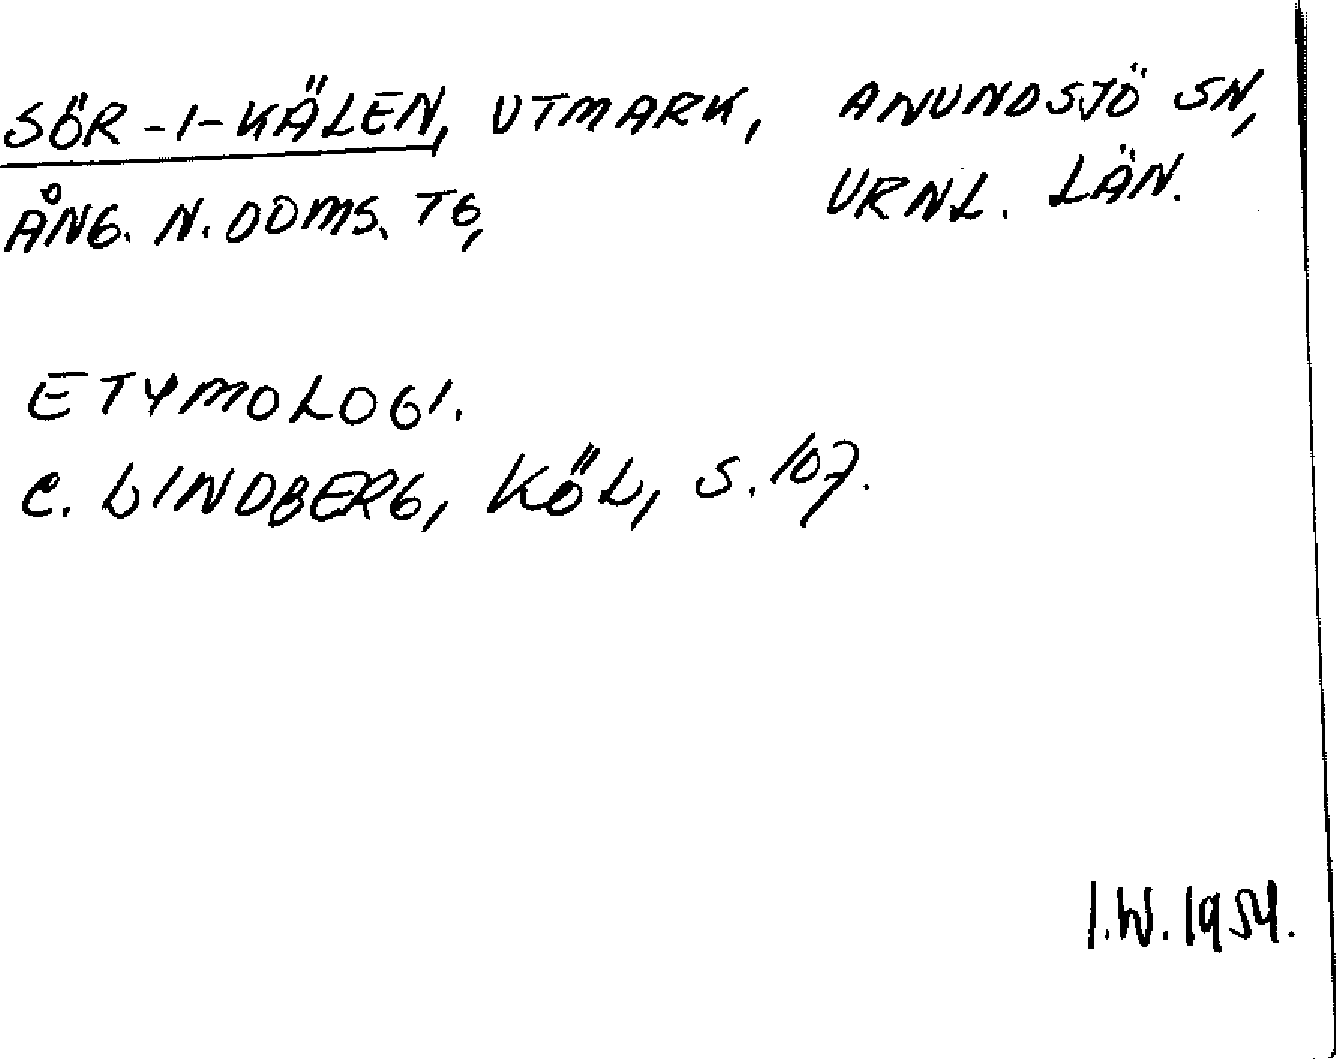 SÖR-I-KÄLEN, UTMARK, ANUNDSJÖ SN,
ÅNG. N. DOMS. TG, VRNL. LÄN.
ETYMOLOGI.
C. LINDBERG, KÖL, S. 107.
I.W. 1954.